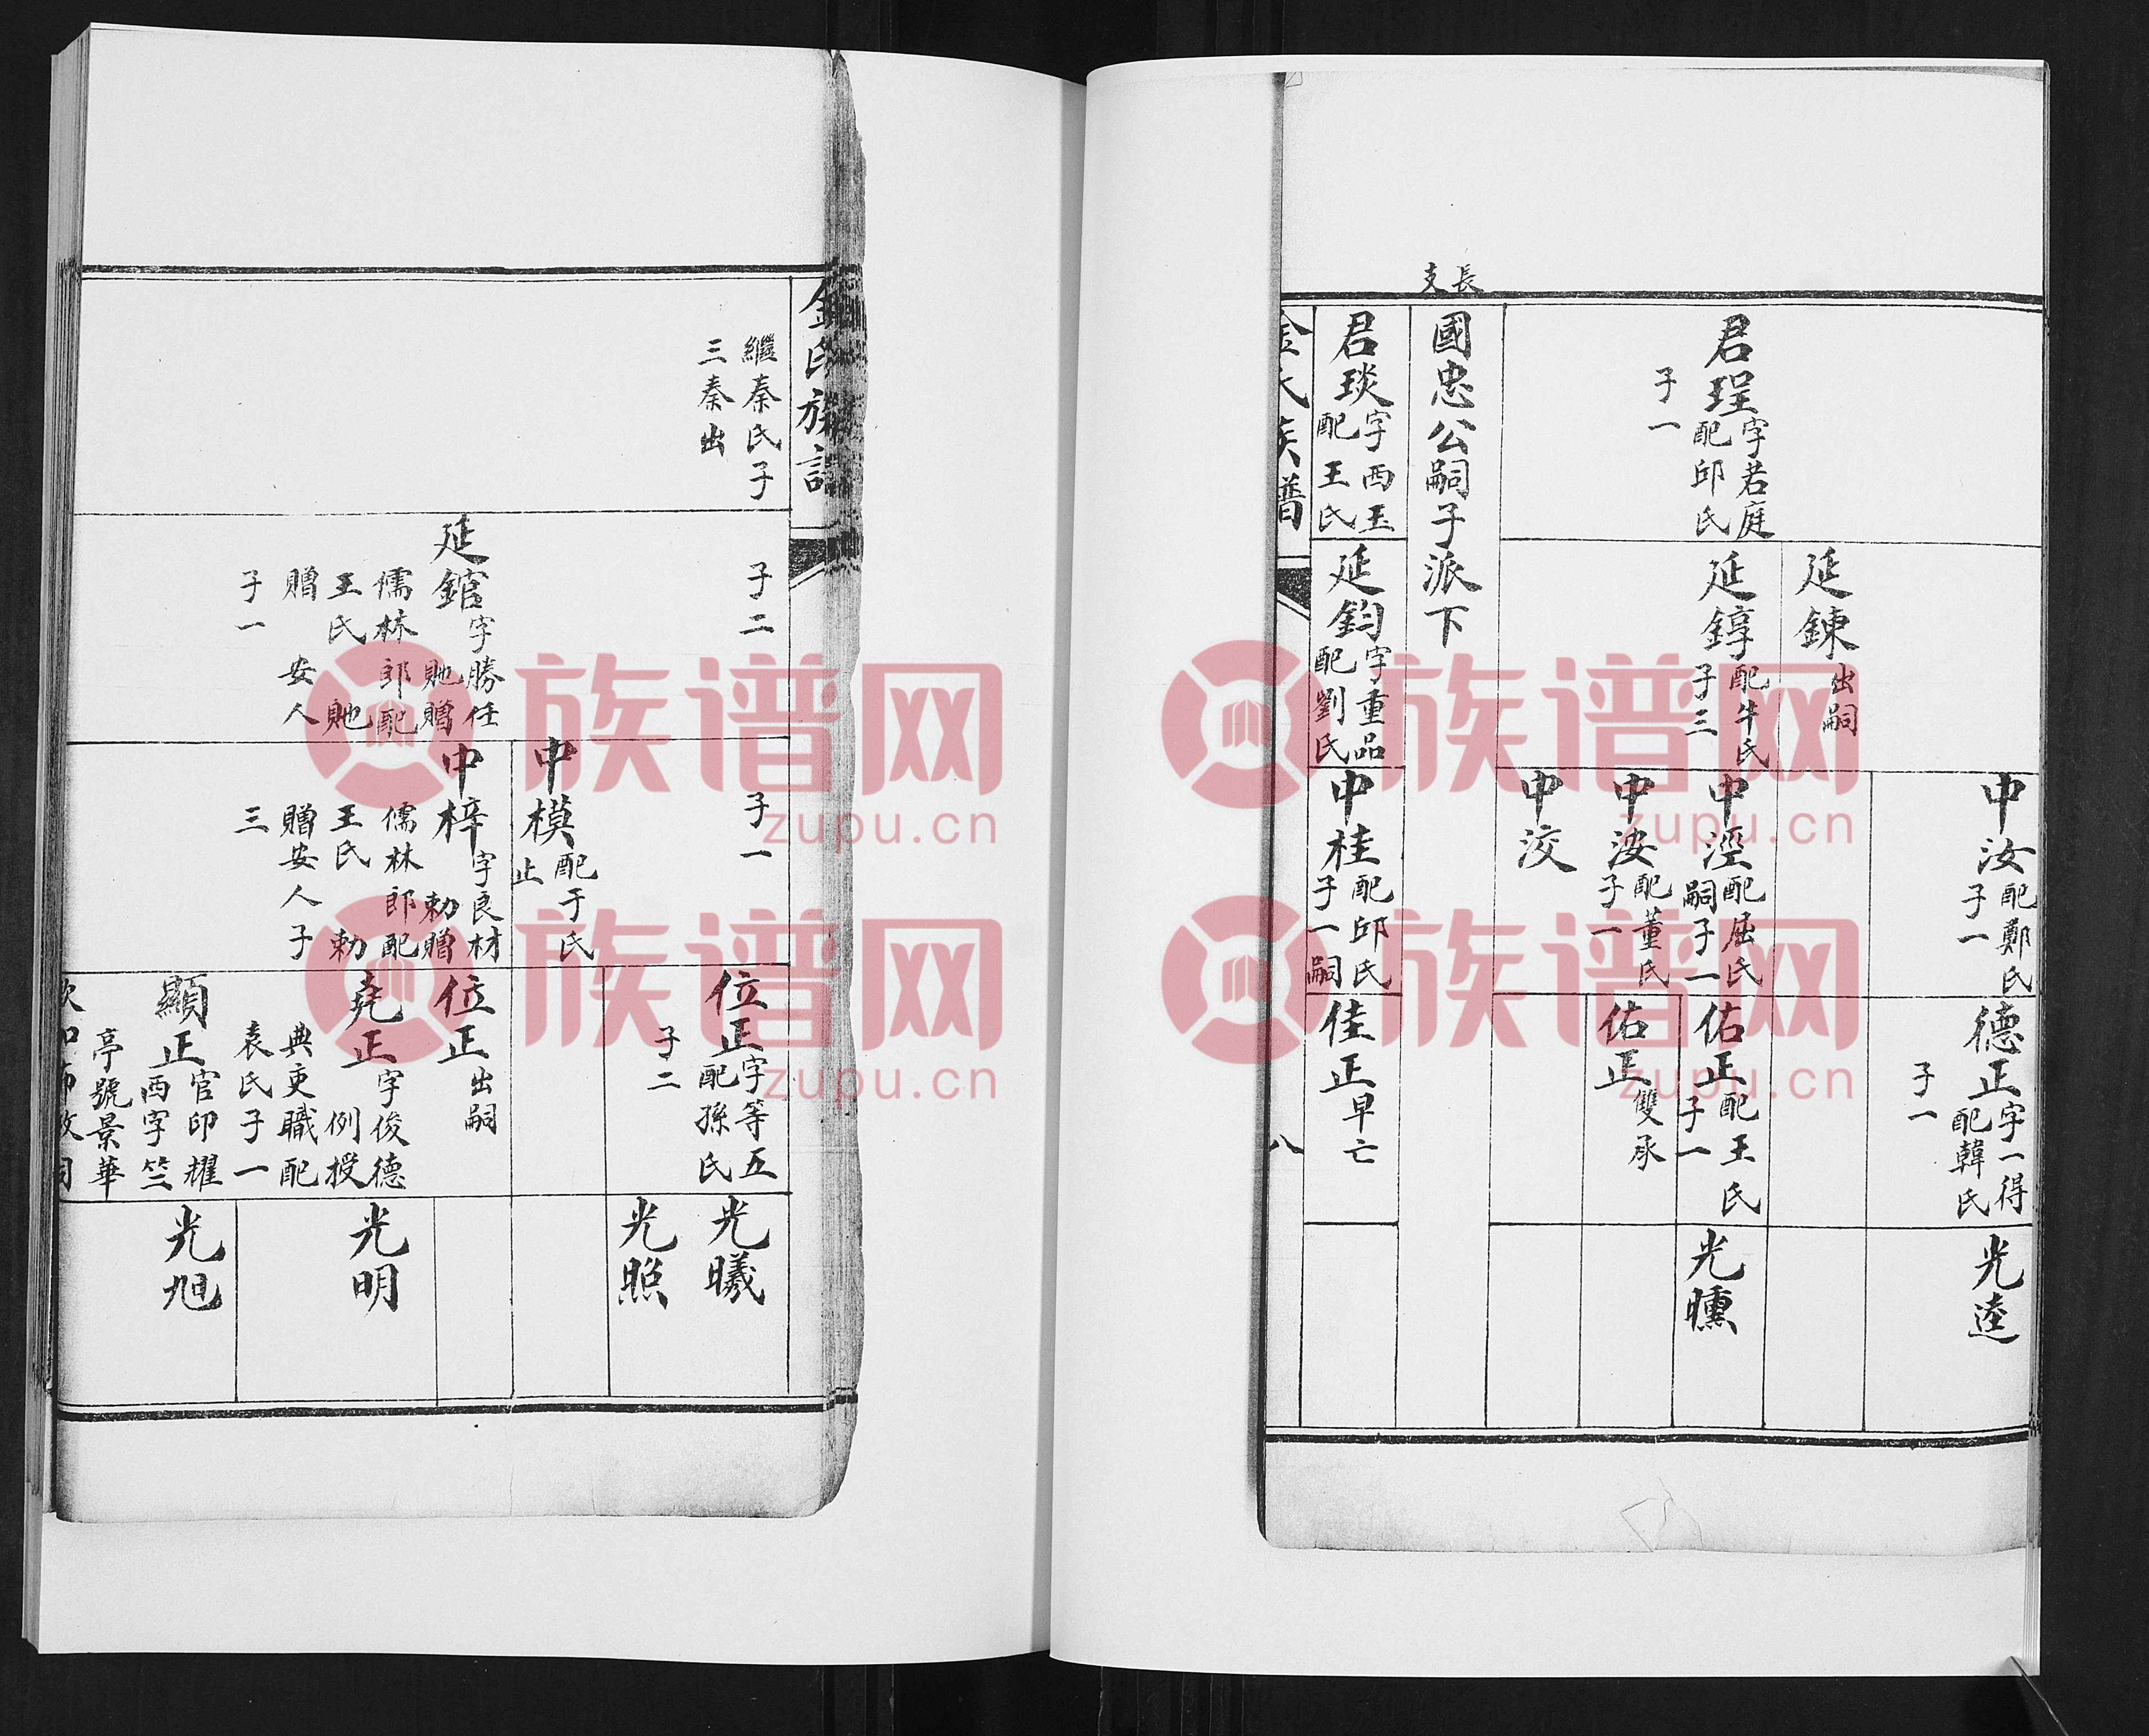 長
支
君珵字君庭
配邱氏
子一
延鍊出嗣
延錞配牛氏
子三
中汝配鄭氏
子一
中涇配屈氏
嗣子一
中洝配董氏
子一
中洨
德正字一得
配韓氏
子一
佑正配王氏
子一
佑正雙承
光逵
光曛
國忠公嗣子派下
君琰字西玉
配王氏
延鈞字重品
配劉氏
中桂配邱氏
子一嗣
佳正早亡
金氏族譜
八
金氏族譜
繼秦氏子
三秦出
子二
延錧字勝任
貤贈
儒林郎配
王氏貤
贈安人
子一
子一
中模配于氏
止
中梓字良材
勅贈
儒林郎配
王氏勅
贈安人子
三
位正字等五
配孫氏
子二
位正出嗣
堯正字俊德
例授
典吏職配
袁氏子一
顯正官印耀
西字竺
亭號景華
光曦
光照
光明
光旭
族谱网
zupu.cn
族谱网
zupu.cn
族谱网
zupu.cn
族谱网
zupu.cn